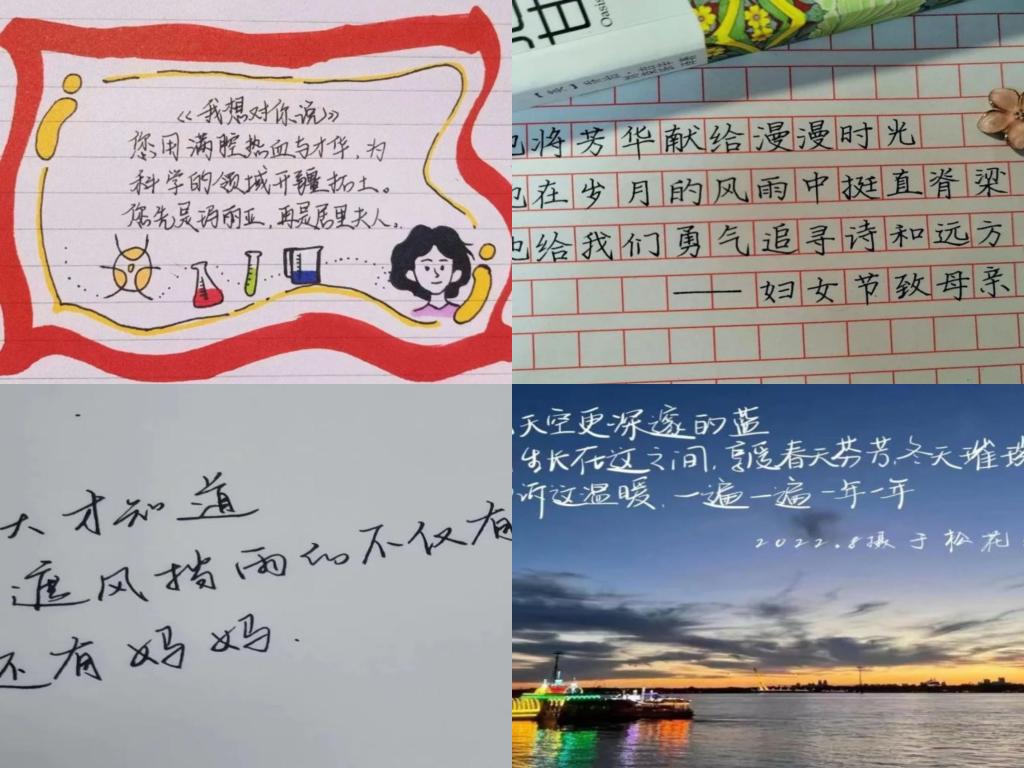 《我想对你说》
您用满腔热血与才华,为
科学的领域开疆拓土。
您先是玛丽亚,再是居里夫人。
Oasis
将芳华献给漫漫时光
在岁月的风雨中挺直脊梁
给我们勇气追寻诗和远方
——妇女节致母亲
大才知道
遮风挡雨的不仅有
还有妈妈.
天空更深邃的蓝
生长在这之间,享受春天芬芳,冬天璀璨
诉这温暖,一遍一遍一年一年
2022.8摄于松花